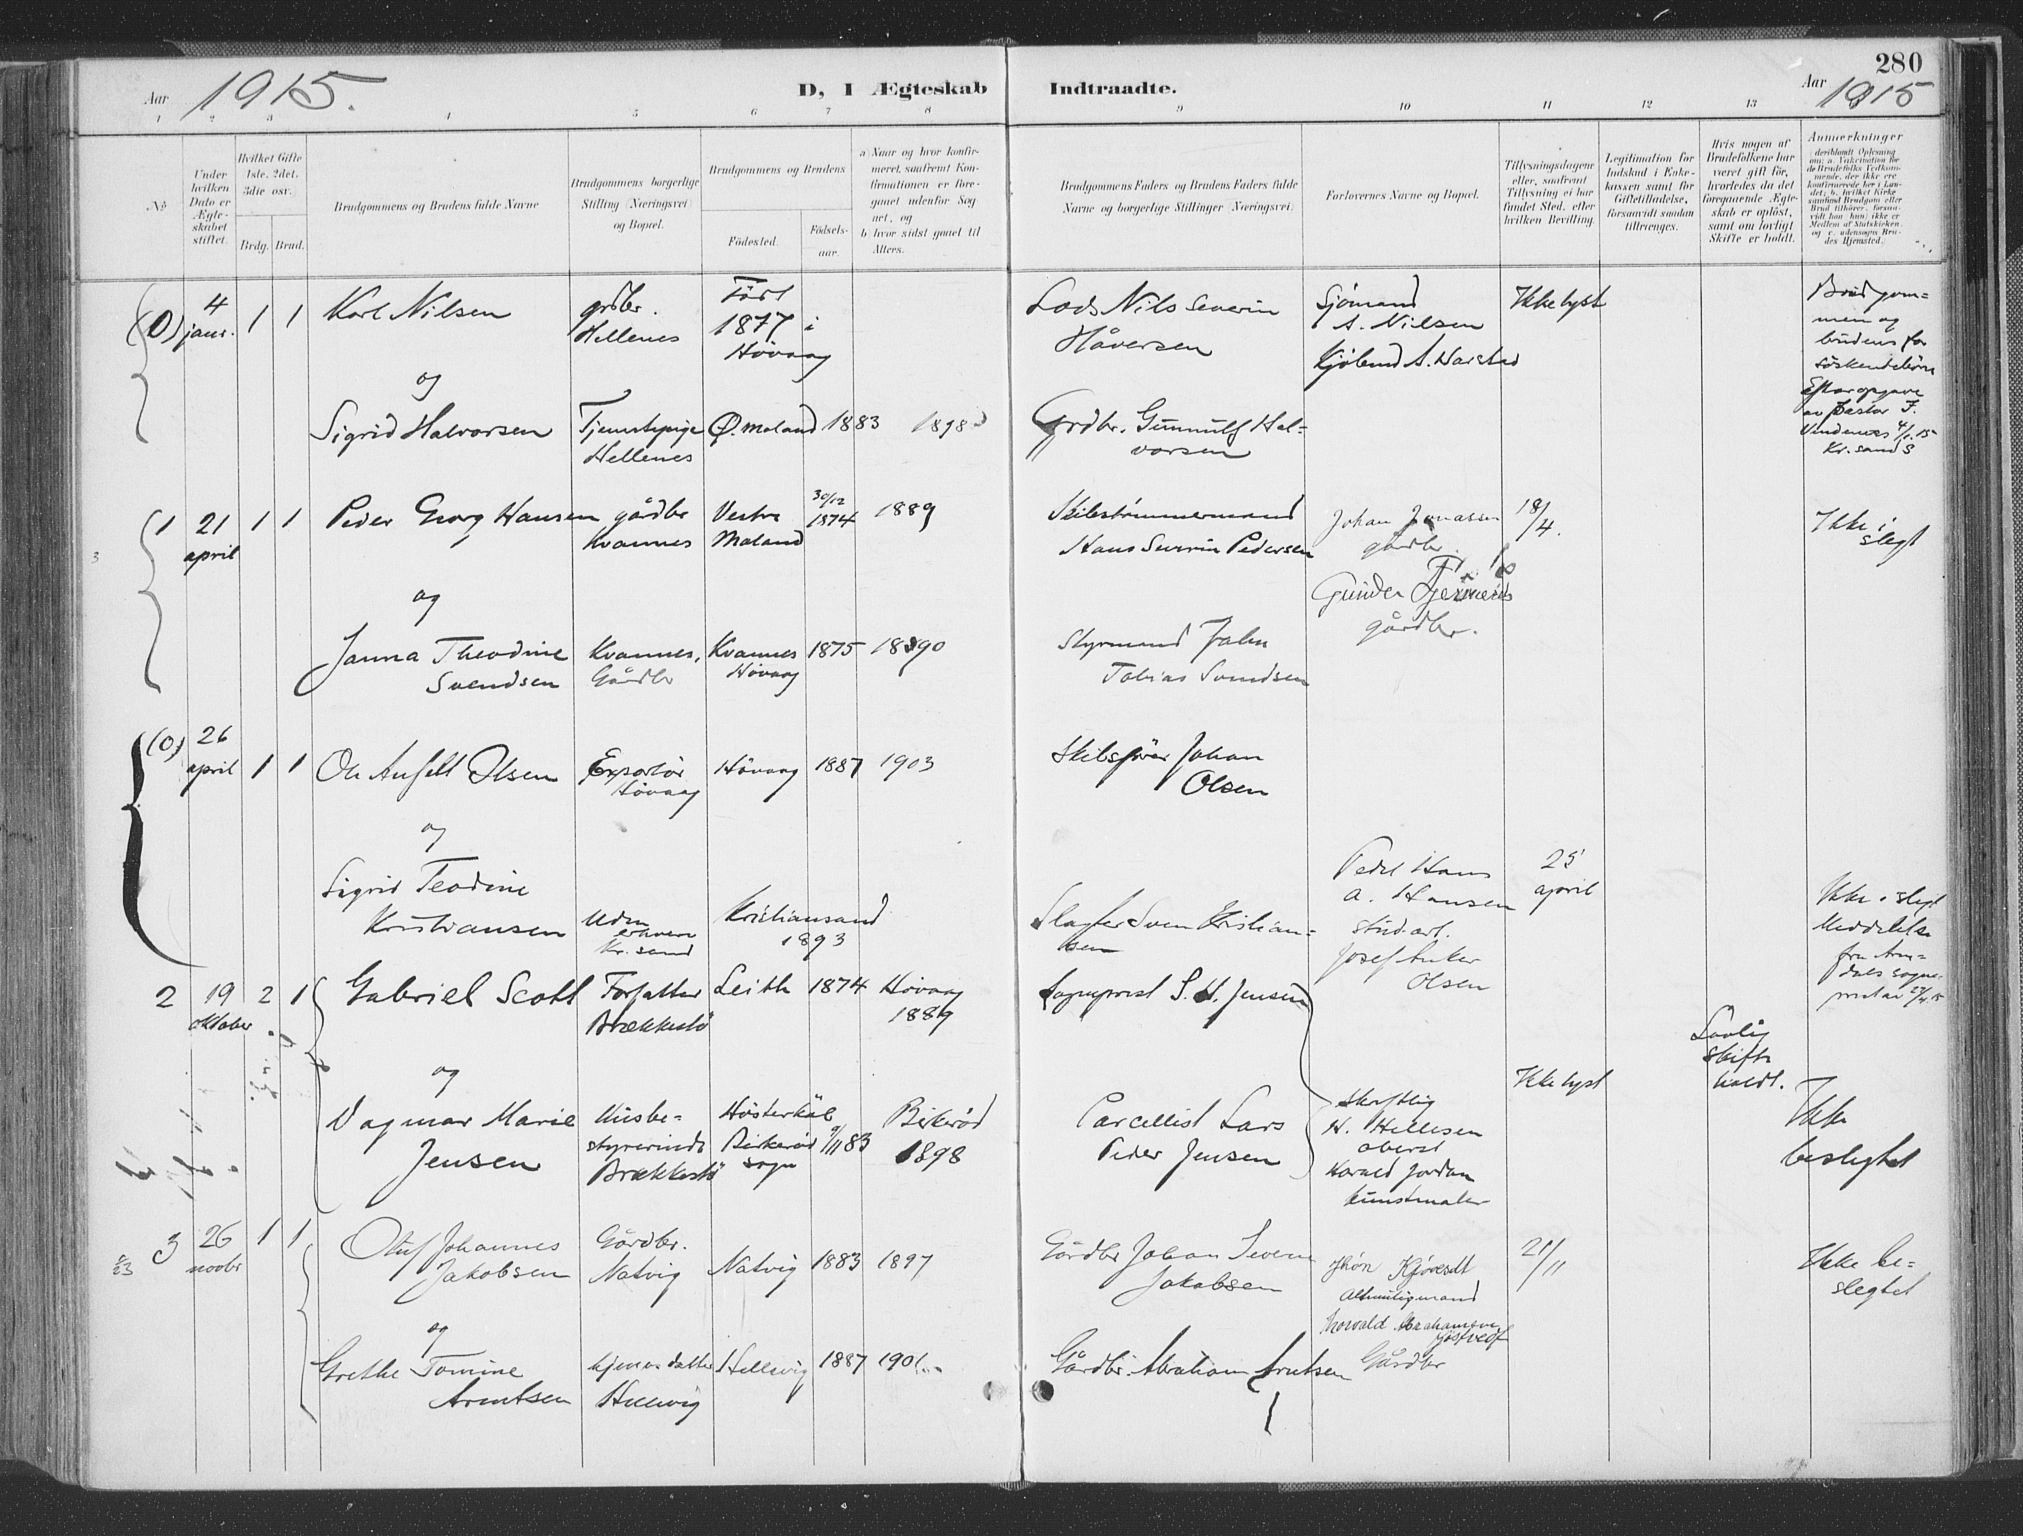 280
Aar 1915.
D, I Ægteskab Indtraadte.
Aar 1915
1 2 3 4 5 6 7 8 9 10 11 12 13
No
Under hvilken Dato er Ægteskabet stiftet.
Hvilket Gifte 1ste, 2det, 3die osv.
Brdg. Brud.
Brudgommens og Brudens fulde Navne
Brudgommens borgerlige Stilling (Næringsvei) og Bopæl.
Brudgommens og Brudens
Fødested.
Fødsels-aar.
a) Naar og hvor konfirmeret, saafremt Konfirmationen er foregaaet udenfor Sognet, og
b) hvor sidst gaaet til Alters.
Brudgommens Faders og Brudens Faders fulde Navne og borgerlige Stillinger (Næringsvei)
Forlovernes Navne og Bopæl.
Tillysningsdagene eller, saafremt Tillysning ei har fundet Sted, efter hvilken Bevilling.
Legitimation for Indskud i Enkekassen samt for Giftetilladelse, forsaavidt saadan tiltrænges.
Hvis nogen af Brudefolkene har været gift før, hvorledes da det foregaaende Ægteskab er opløst, samt om lovligt Skifte er holdt.
Anmerkninger
(0) 4 janr. 1 1
Karl Nilsen
grdbr. Hellenes
Født 1877 i Høvaag
Lods Nils Severin Håversen
Sjømand A. Nilsen
A. Harstad
Ikke lyst
Brudgommen og brudens
søskendebørn
Efter opgave
4/1.15
Kr.sand S
og
Sigrid Halvorsen
Tjenestepige Hellenes
Ø. Moland 1883 1898
Grdbr. Gunnulf Halvorsen
1 21 april 1 1
Peder Georg Hansen
gårdbr Kvannes
Vestre Moland
30/12 1874
1889
Skibstømmermand Hans Severin Pedersen
Johan Jonassen gårdbr.
18/4.
Ikke i slegt
og
Gunder
gårdbr.
Janna Theodine Svendsen
Kvannes, Gårdbr
Kvannes Høvaag
1875 1890
Styrmand John Tobias Svendsen
(0) 26 april 1 1
Ole Anfelt Olsen
Exportør Høvaag
Høvaag 1887 1903
Skibsfører Johan Olsen
og
Sigrid Teodine Kristiansen
Uden erhverv Kr. sand
Kristiansand 1893
Slagter Sven Kristiansen
Peder Hans A. Hansen
stud. art.
Josef Anker Olsen
25 april
Ikke i slegt
Meddelelse fra Arendals sogneprest av
2 19 oktober 2 1
Gabriel Scott
Forfatter Brækkestø
Leith 1874
Høvaag 1889
Sogneprest S. H. Jensen
Lovlig skifte holdt.
og
Ikke lyst
Dagmar Marie Jensen
Husbestyrerinde Brækkestø
Høsterkøb Birkerød sogn
9/11 83
Birkerød 1898
Parcellist Lars Peder Jensen
Skriftlig
H. Hellesen oberst
Harald Jordan kunstmaler
Ikke beslegtet
3 26 novbr 1 1
Oluf Johannes Jakobsen
Gårdbr. Natvig
Natvig 1883 1897
Gårdbr Johan Severin Jakobsen
Altmuligmand
21/11
Ikke beslegtet
og
Torvald Abrahamsen
Gårdbr
Grethe Tomine Arentsen
Hellevig
Hellevig 1887 1901
Gårdbr. Abraham Arntsen